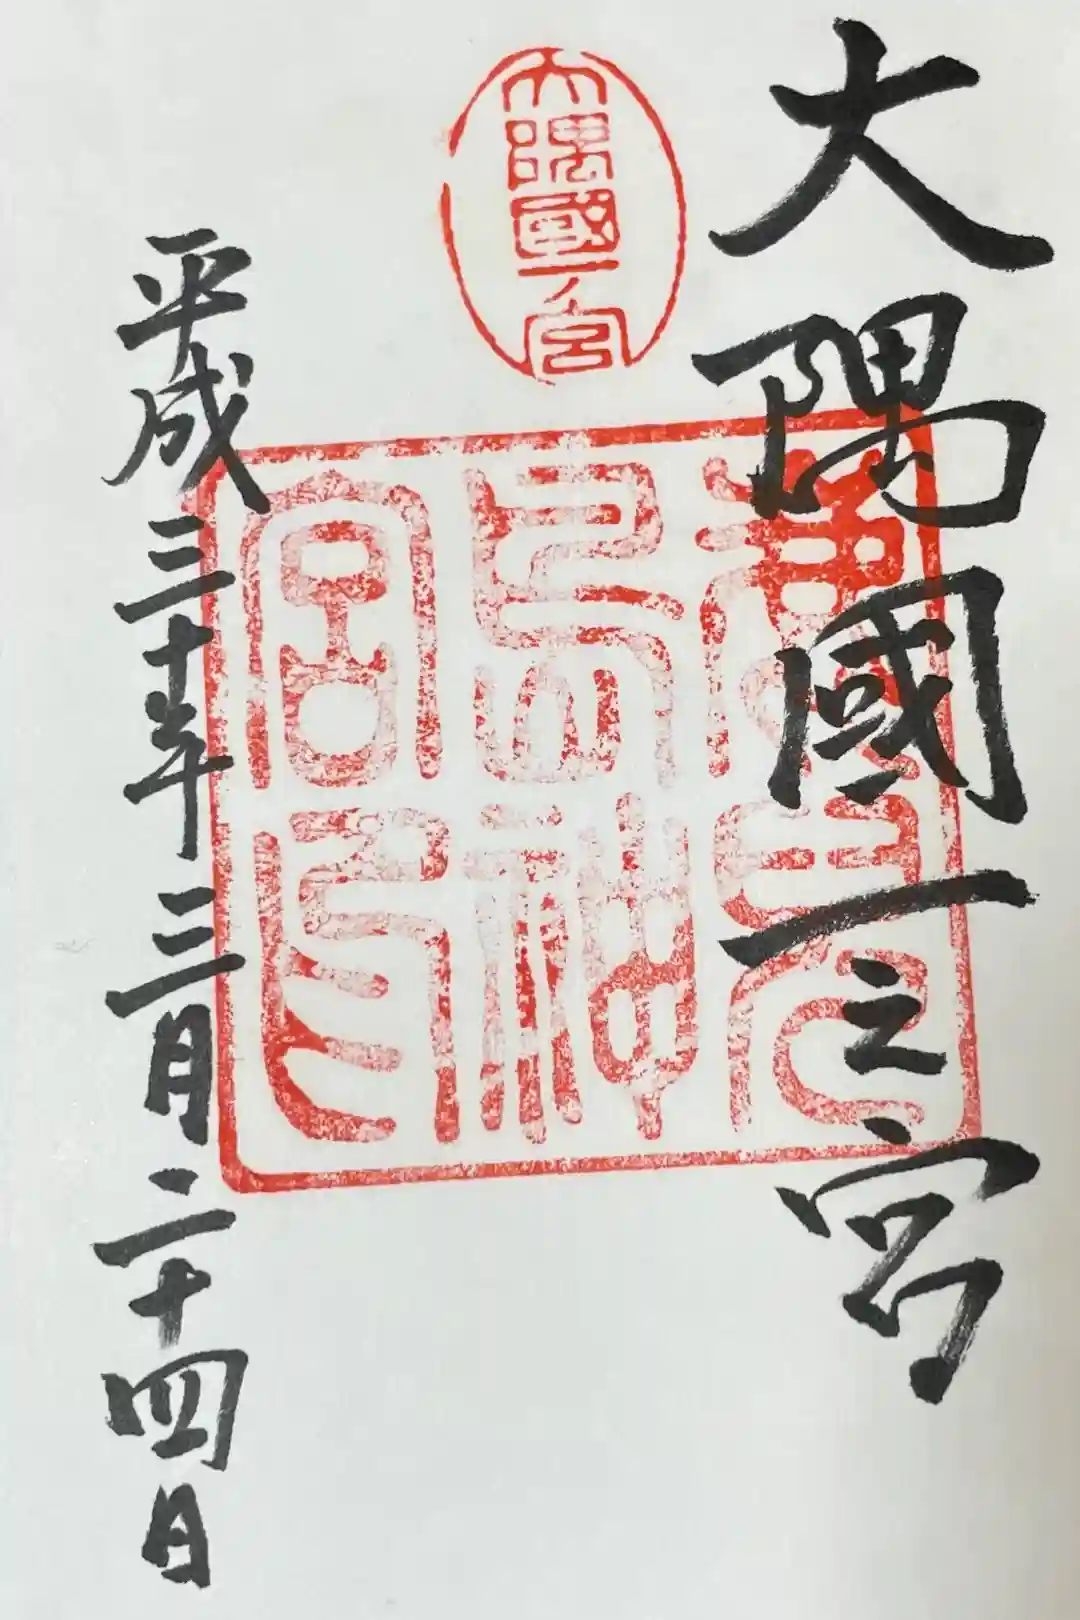 大隅國一之宮
大隅國一ノ宮
鹿兒
島神
宮印
平成三十年三月二十四日